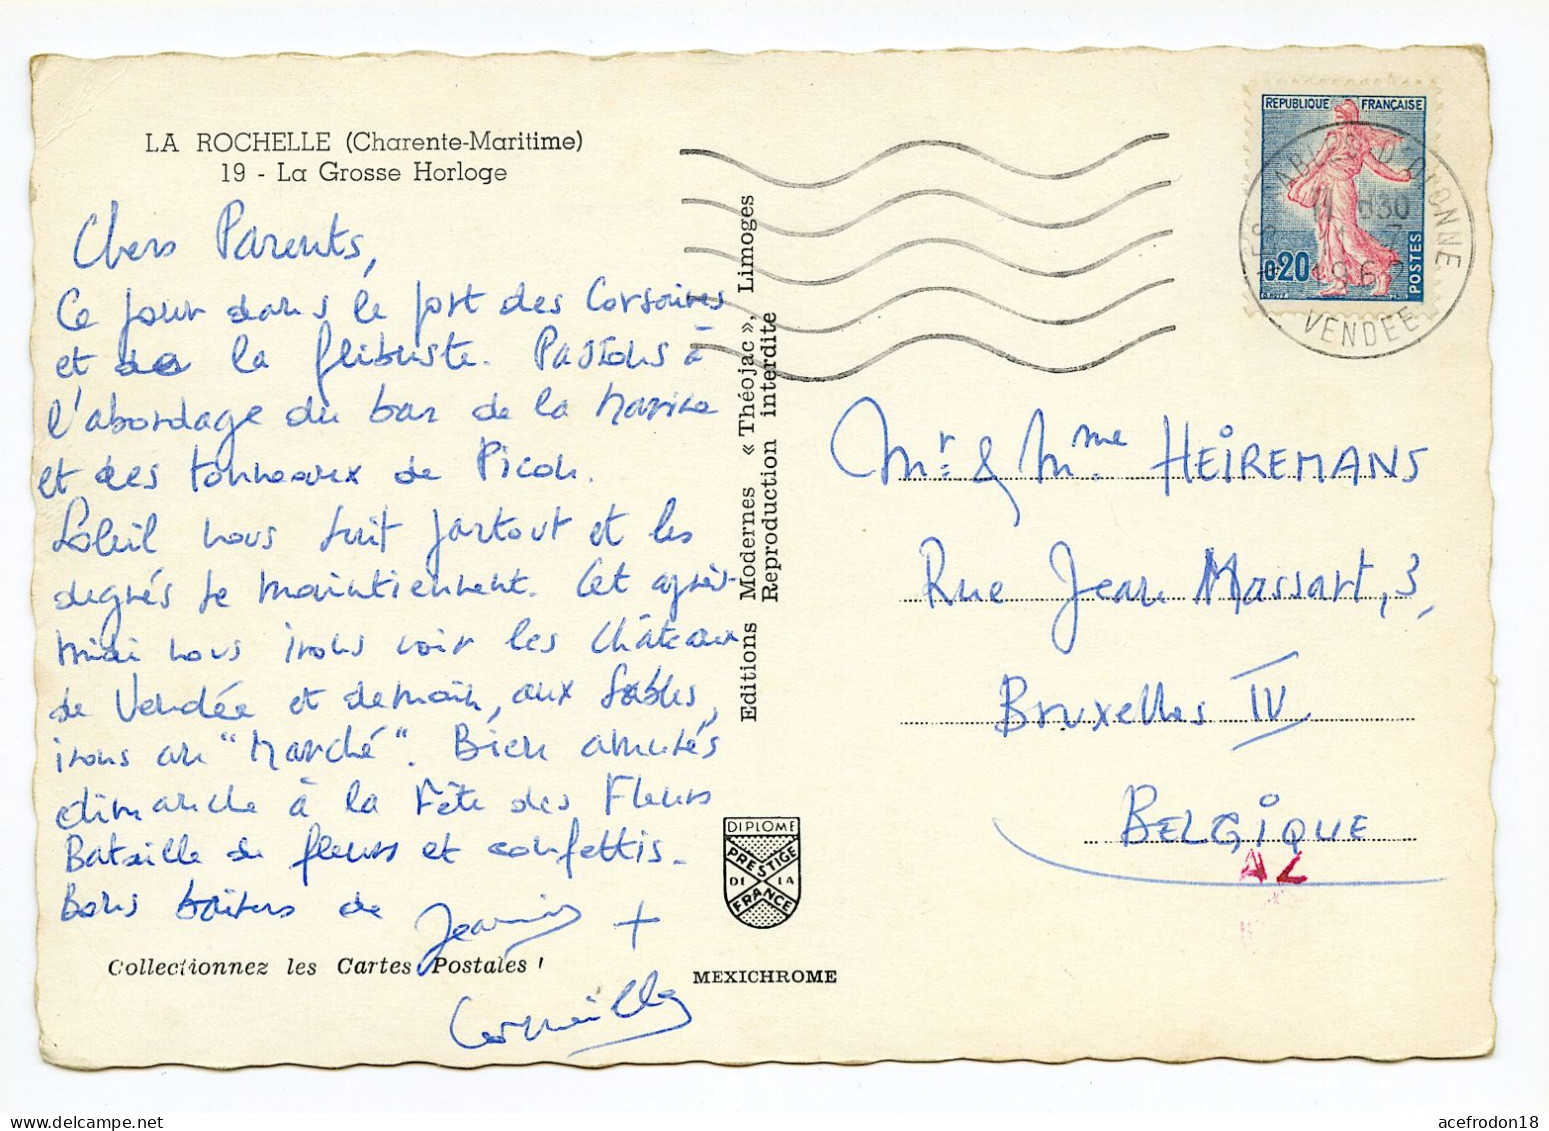 LA ROCHELLE (Charente-Maritime)
19 - La Grosse Horloge
Chers Parents,
Ce jour dans le port des Corsaires
et de la flibuste. Passons à
l'abordage du bar de la Marine
et des tonneaux de Picon.
Soleil nous suit partout et les
degrés se maintiennent. Cet après-
midi nous irons voir les Châteaux
de Vendée et demain, aux Sables,
irons au "Marché". Bien amusés
dimanche à la Fête des Fleurs
Bataille de fleurs et confettis.
Bons baisers de Jeannine +
Corneille
Collectionnez les Cartes Postales !
Editions Modernes « Théojac », Limoges
Reproduction interdite
DIPLOME
PRESTIGE
DE LA
FRANCE
MEXICHROME
REPUBLIQUE FRANÇAISE
0,20
POSTES
LES SABLES D'OLONNE
VENDEE
Mr. & Mme HEIREMANS
Rue Jean Massart, 3,
Bruxelles IV
BELGIQUE
AL
acefrodon18